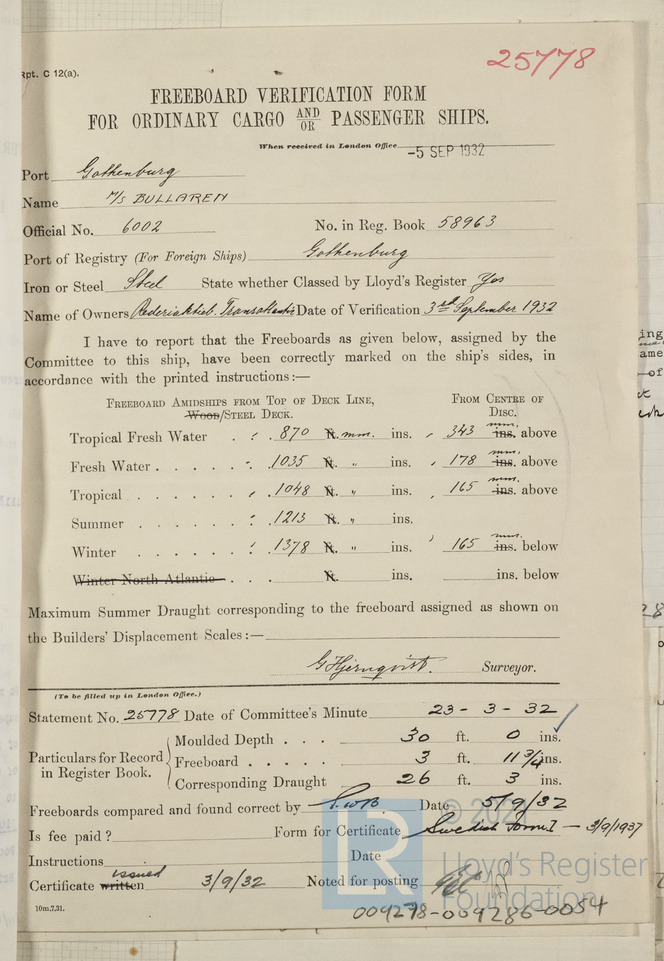 25778
Rpt. C 12(a).
FREEBOARD VERIFICATION FORM
FOR ORDINARY CARGO AND/OR PASSENGER SHIPS.
When received in London Office -5 SEP 1932
Port Gothenburg
Name M/S BULLAREN
Official No. 6002 No. in Reg. Book 58963
Port of Registry (For Foreign Ships) Gothenburg
Iron or Steel Steel State whether Classed by Lloyd's Register Yes
Name of Owners Rederiaktieb. Transatlantic Date of Verification 3rd September 1932
I have to report that the Freeboards as given below, assigned by the
Committee to this ship, have been correctly marked on the ship's sides, in
accordance with the printed instructions:—
FREEBOARD AMIDSHIPS FROM TOP OF DECK LINE, FROM CENTRE OF
WOOD/STEEL DECK. DISC.
Tropical Fresh Water . . . 870 ft. mm. ins. 343 mm. ins. above
Fresh Water . . . . . . 1035 ft. " ins. 178 mm. ins. above
Tropical . . . . . . 1048 ft. " ins. 165 mm. ins. above
Summer . . . . . . 1213 ft. " ins.
Winter . . . . . . 1378 ft. " ins. 165 mm. ins. below
Winter North Atlantic . . . ft. ins. ins. below
Maximum Summer Draught corresponding to the freeboard assigned as shown on
the Builders' Displacement Scales:—
G Hjernqvist. Surveyor.
(To be filled up in London Office.)
Statement No. 25778 Date of Committee's Minute 23-3-32
Particulars for Record in Register Book.
Moulded Depth . . . 30 ft. 0 ins.
Freeboard . . . . . 3 ft. 11 3/4 ins.
Corresponding Draught 26 ft. 3 ins.
Freeboards compared and found correct by Date 5/9/32
Is fee paid? Form for Certificate Swedish Form I — 3/9/1937
Instructions Date
Certificate written issued 3/9/32 Noted for posting
10m,7,31.
009278-009286-0054
LR
Lloyd's Register
Foundation